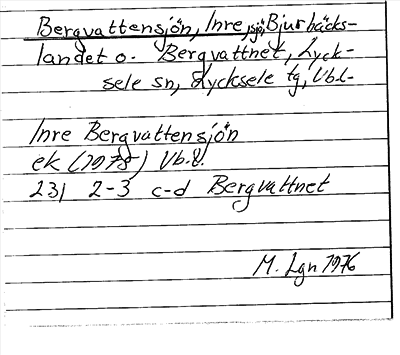 Bergvattensjön, Inre, sjö, Bjurbäcks-
landet o. Bergvattnet, Lyck-
sele sn, Lycksele tg, Vb.l.
Inre Bergvattensjön
ek (1978) Vb.l.
231 2-3 c-d Bergvattnet
M. Lgn 1976